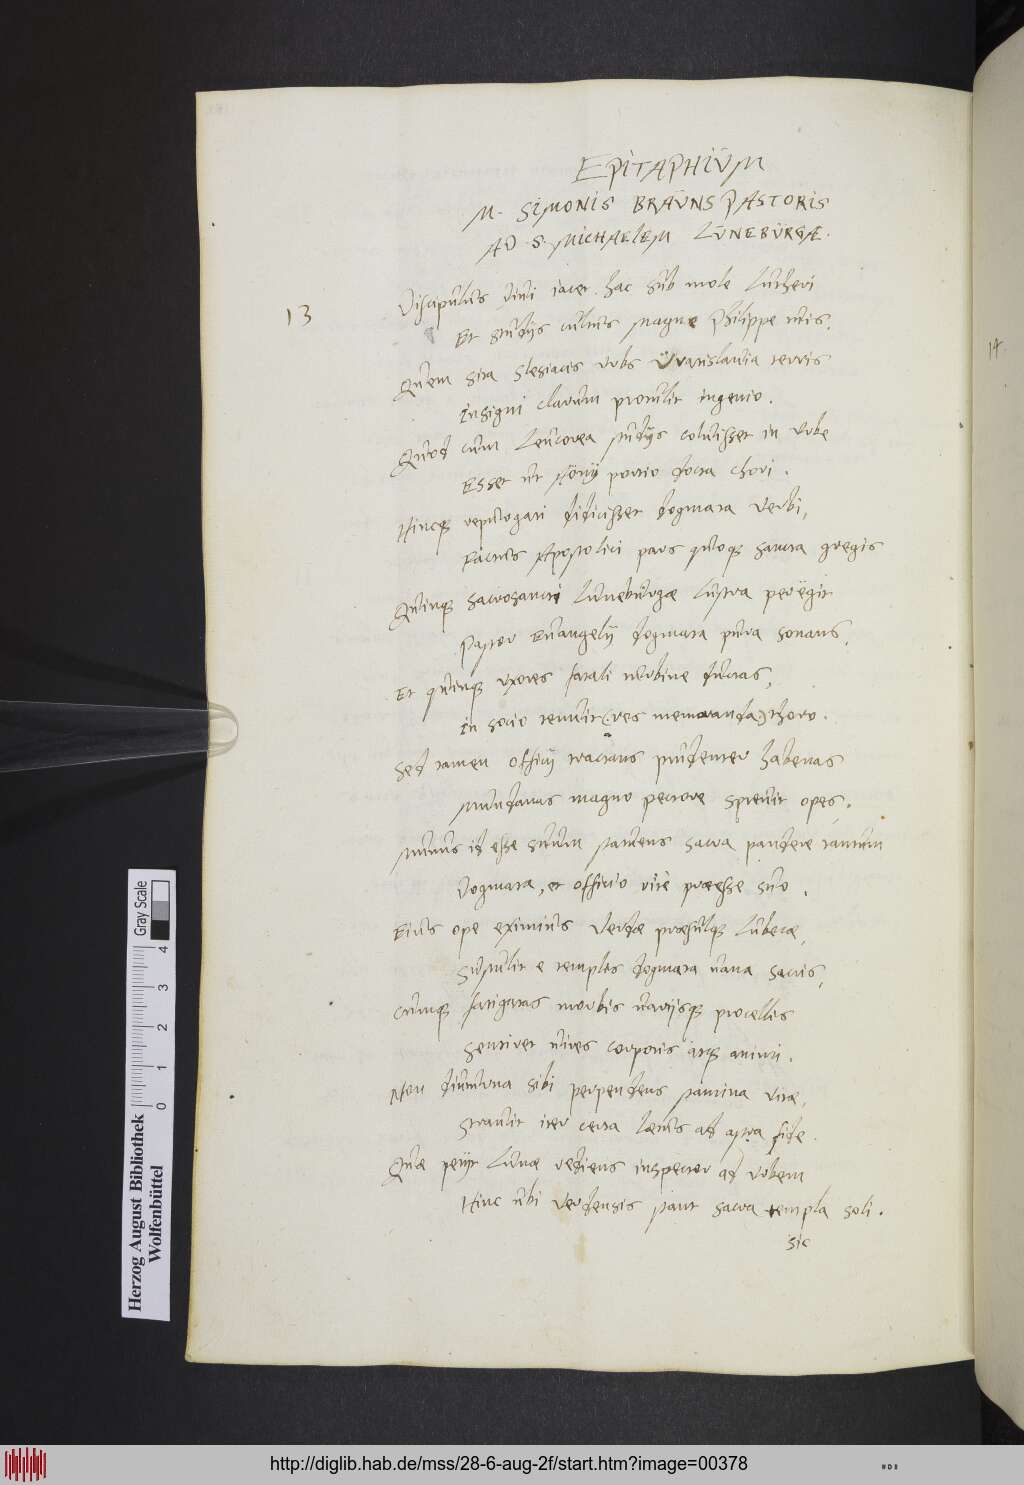 EPITAPHIUM
M. SIMONIS BRAUNS PASTORIS
AD S. MICHAELEM LUNEBURGÆ.
13
Discipulus divi iacet hac sub mole Lutheri
Et studijs cultus magne Philippe tuis.
Quem sita Slesiacis urbs Uratislavia terris
Insigni clarum protulit ingenio.
Quod cum Leucorea studijs coluisset in Urbe
Esset ut Aonij portio docta chori.
Hincq repurgati didicisset dogmata verbi,
Factus Apostolici pars quoq sancta gregis
Quinq sacrosancti Luneburgæ Lustra peregit
Pastor Euangelij dogmata pura sonans,
Et quinq uxores fatali turbine ductas,
In socio tenuit (res memoranda) thoro.
Sed tamen officij tractans prudenter habenas
Mundanas magno pectore sprevit opes.
Munus id esse suum statuens sacra pandere tantum
Dogmata, et officio rite præesse suo.
Eius ope eximius Verdæ præsulq Lubecæ,
Sustulit e templis dogmata vana sacris,
Cumq fatigatas morbis varijsq procellis
Sentiret vires corporis atq animi.
Non diuturna sibi perpendens stamina vitæ,
Stravit iter certa lætus ad astra fide.
Quæ petijt Lunæ rediens inspector ad Urbem
Hinc ubi Verdensis stant sacra templa soli.
sic
14.
Herzog August Bibliothek
Wolfenbüttel
0 1 2 3 4
Gray Scale
http://diglib.hab.de/mss/28-6-aug-2f/start.htm?image=00378